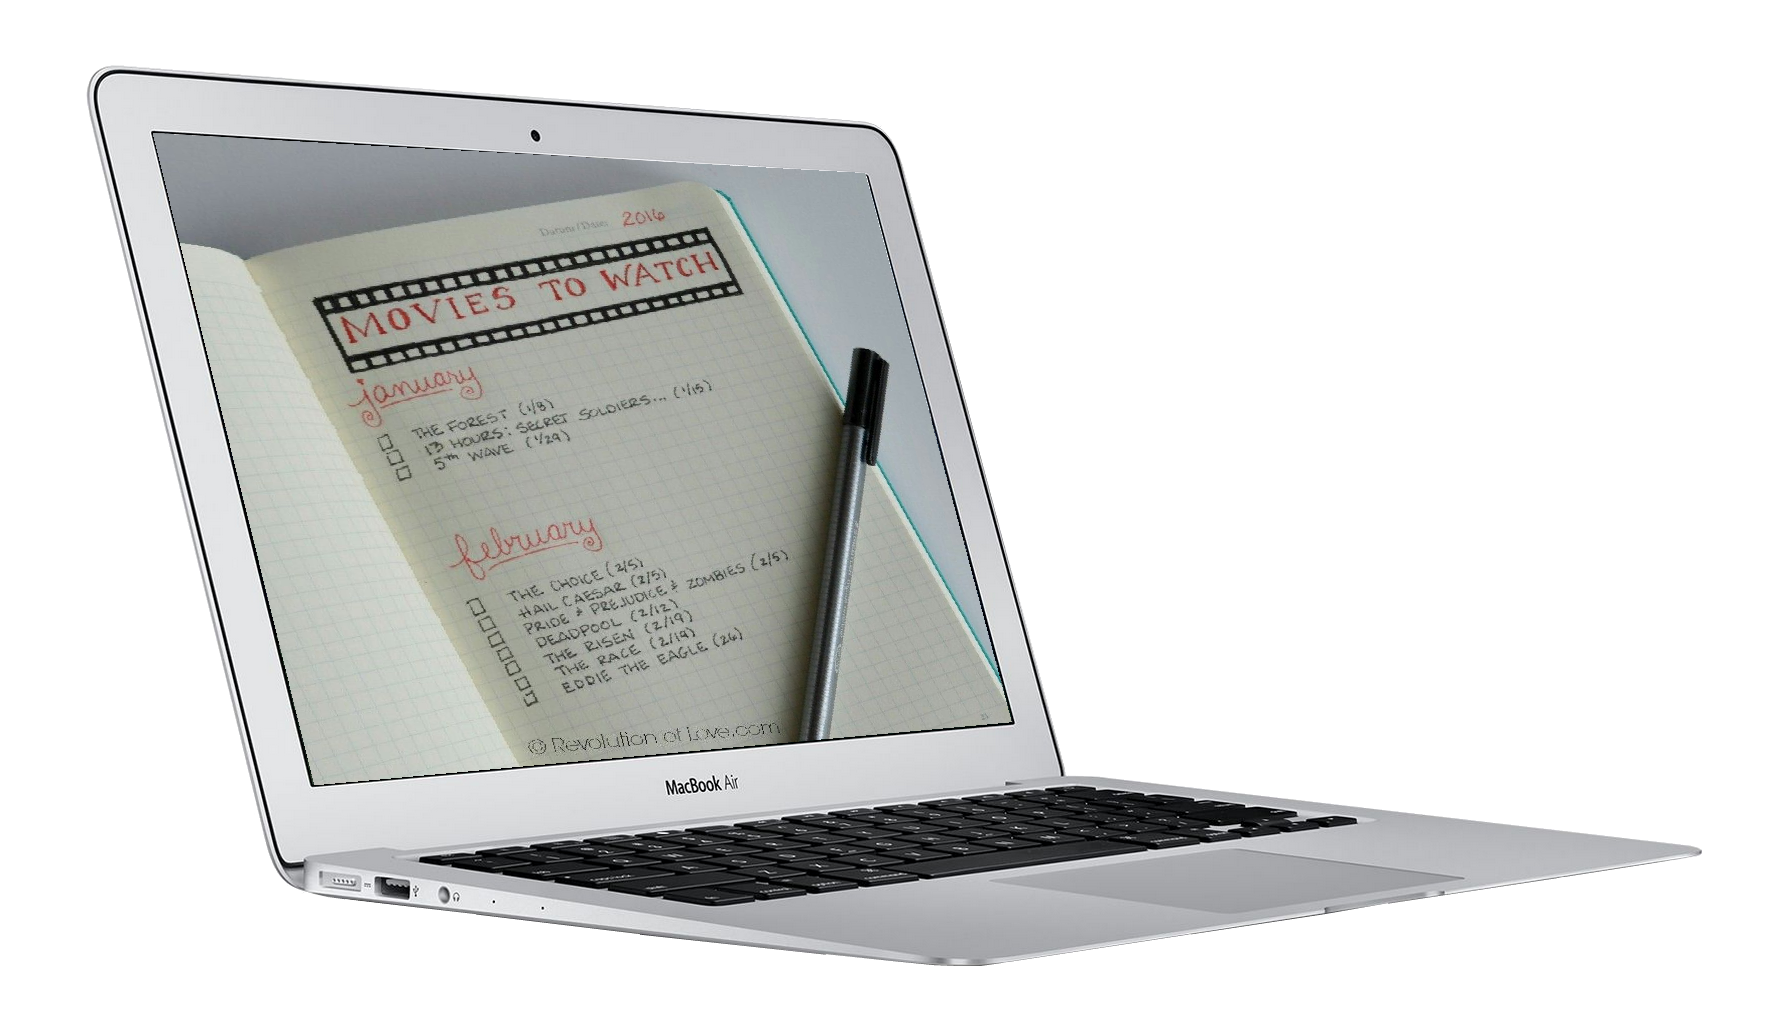 Datum / Date: 2016
MOVIES TO WATCH
january
THE FOREST (1/8)
13 HOURS: SECRET SOLDIERS... (1/15)
5th WAVE (1/29)
february
THE CHOICE (2/5)
HAIL CAESAR (2/5)
PRIDE & PREJUDICE & ZOMBIES (2/5)
DEADPOOL (2/12)
THE RISEN (2/19)
THE RACE (2/19)
EDDIE THE EAGLE (26)
© Revolution of Love.com
MacBook Air